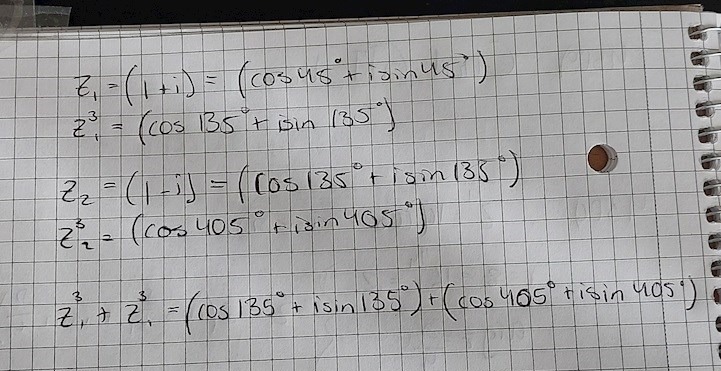 z₁ = (1+i) = (cos 45° + i sin 45°)
z₁³ = (cos 135° + i sin 135°)
z₂ = (1-i) = (cos 135° + i sin 135°)
z₂³ = (cos 405° + i sin 405°)
z₁³ + z₁³ = (cos 135° + i sin 135°) + (cos 405° + i sin 405°)